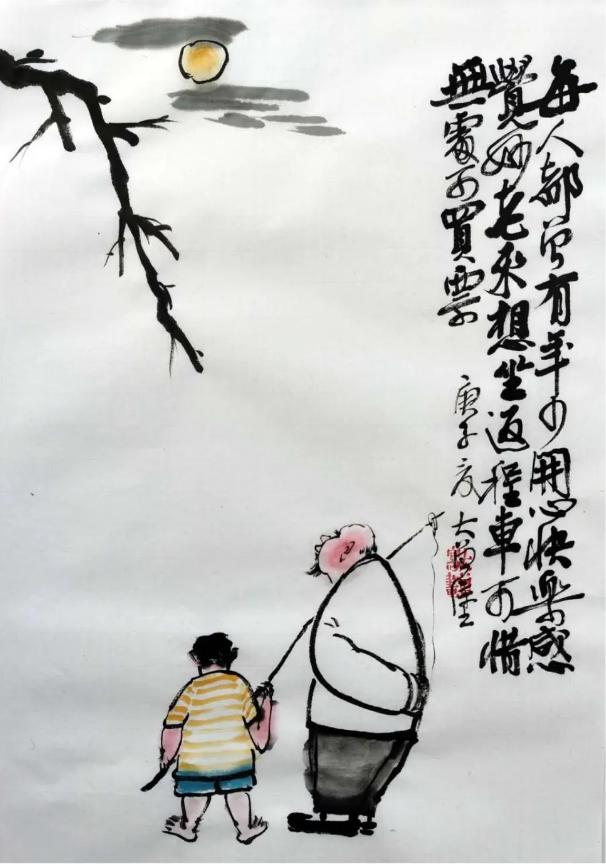 每人都曾有年少開心快樂感
覺妙老来想坐返程車可惜
無處可買票
庚子夏大